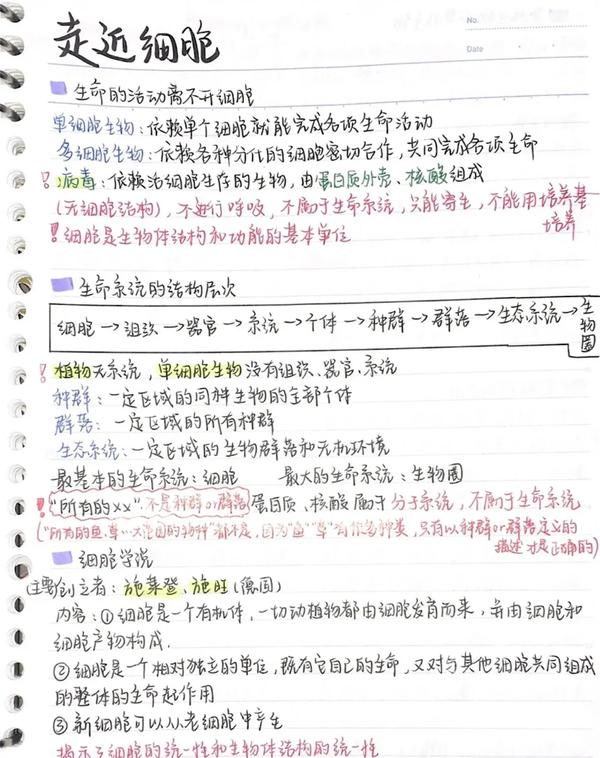 走近细胞
No.
Date
生命的活动离不开细胞
单细胞生物：依赖单个细胞就能完成各项生命活动
多细胞生物：依赖各种分化的细胞密切合作，共同完成各项生命
! 病毒：依赖活细胞生存的生物，由蛋白质外壳、核酸组成
(无细胞结构)，不进行呼吸，不属于生命系统，只能寄生，不能用培养基
培养
! 细胞是生物体结构和功能的基本单位
生命系统的结构层次
细胞→组织→器官→系统→个体→种群→群落→生态系统→生物圈
! 植物无系统，单细胞生物没有组织、器官、系统
种群：一定区域的同种生物的全部个体
群落：一定区域的所有种群
生态系统：一定区域的生物群落和无机环境
最基本的生命系统：细胞 最大的生命系统：生物圈
! "所有的××"不是种群or群落 蛋白质、核酸属于分子系统，不属于生命系统
("所有的鱼、草…大范围的物种"都不是，因为"鱼""草"有很多种类，只有以种群or群落定义的
描述才是正确的)
细胞学说
主要创立者：施莱登、施旺(德国)
内容：①细胞是一个有机体，一切动植物都由细胞发育而来，并由细胞和
细胞产物构成.
②细胞是一个相对独立的单位，既有它自己的生命，又对与其他细胞共同组成
的整体的生命起作用
③新细胞可以从老细胞中产生
揭示了细胞的统一性和生物体结构的统一性